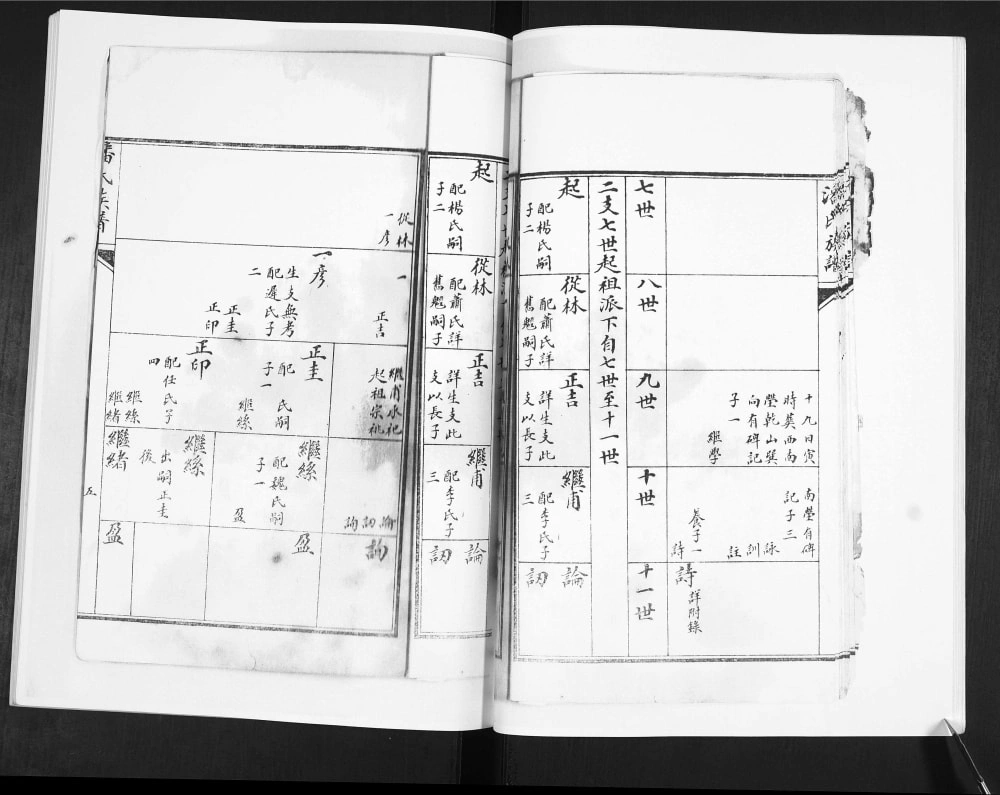 潘氏族譜
十九日寅
時葬西南
塋乾山巽
向有碑記
子一
繼學
南塋有碑
記子三
詠
訓
註
養子一
詩
詩
詳附錄
七世
八世
九世
十世
十一世
二支七世起祖派下自七世至十一世
起
配楊氏嗣
子二
從林
配蕭氏詳
舊譜嗣子
正吉
詳生支此
支以長子
繼甫
配李氏子
三
論
訒
起
配楊氏嗣
子二
從林
配蕭氏詳
舊譜嗣子
正吉
詳生支此
支以長子
繼甫
配李氏子
三
論
訒
從林
一彥
一
正吉
繼甫承祀
起祖宗祧
論
訒
詢
詢
一彥
生支無考
配遲氏子
二
正圭
正印
正圭
配 氏嗣
子一
繼絲
繼絲
配魏氏嗣
子一
盈
盈
正印
配任氏子
四
繼絲
繼緒
繼絲
出嗣正圭
後
繼緒
盈
潘氏族譜
五